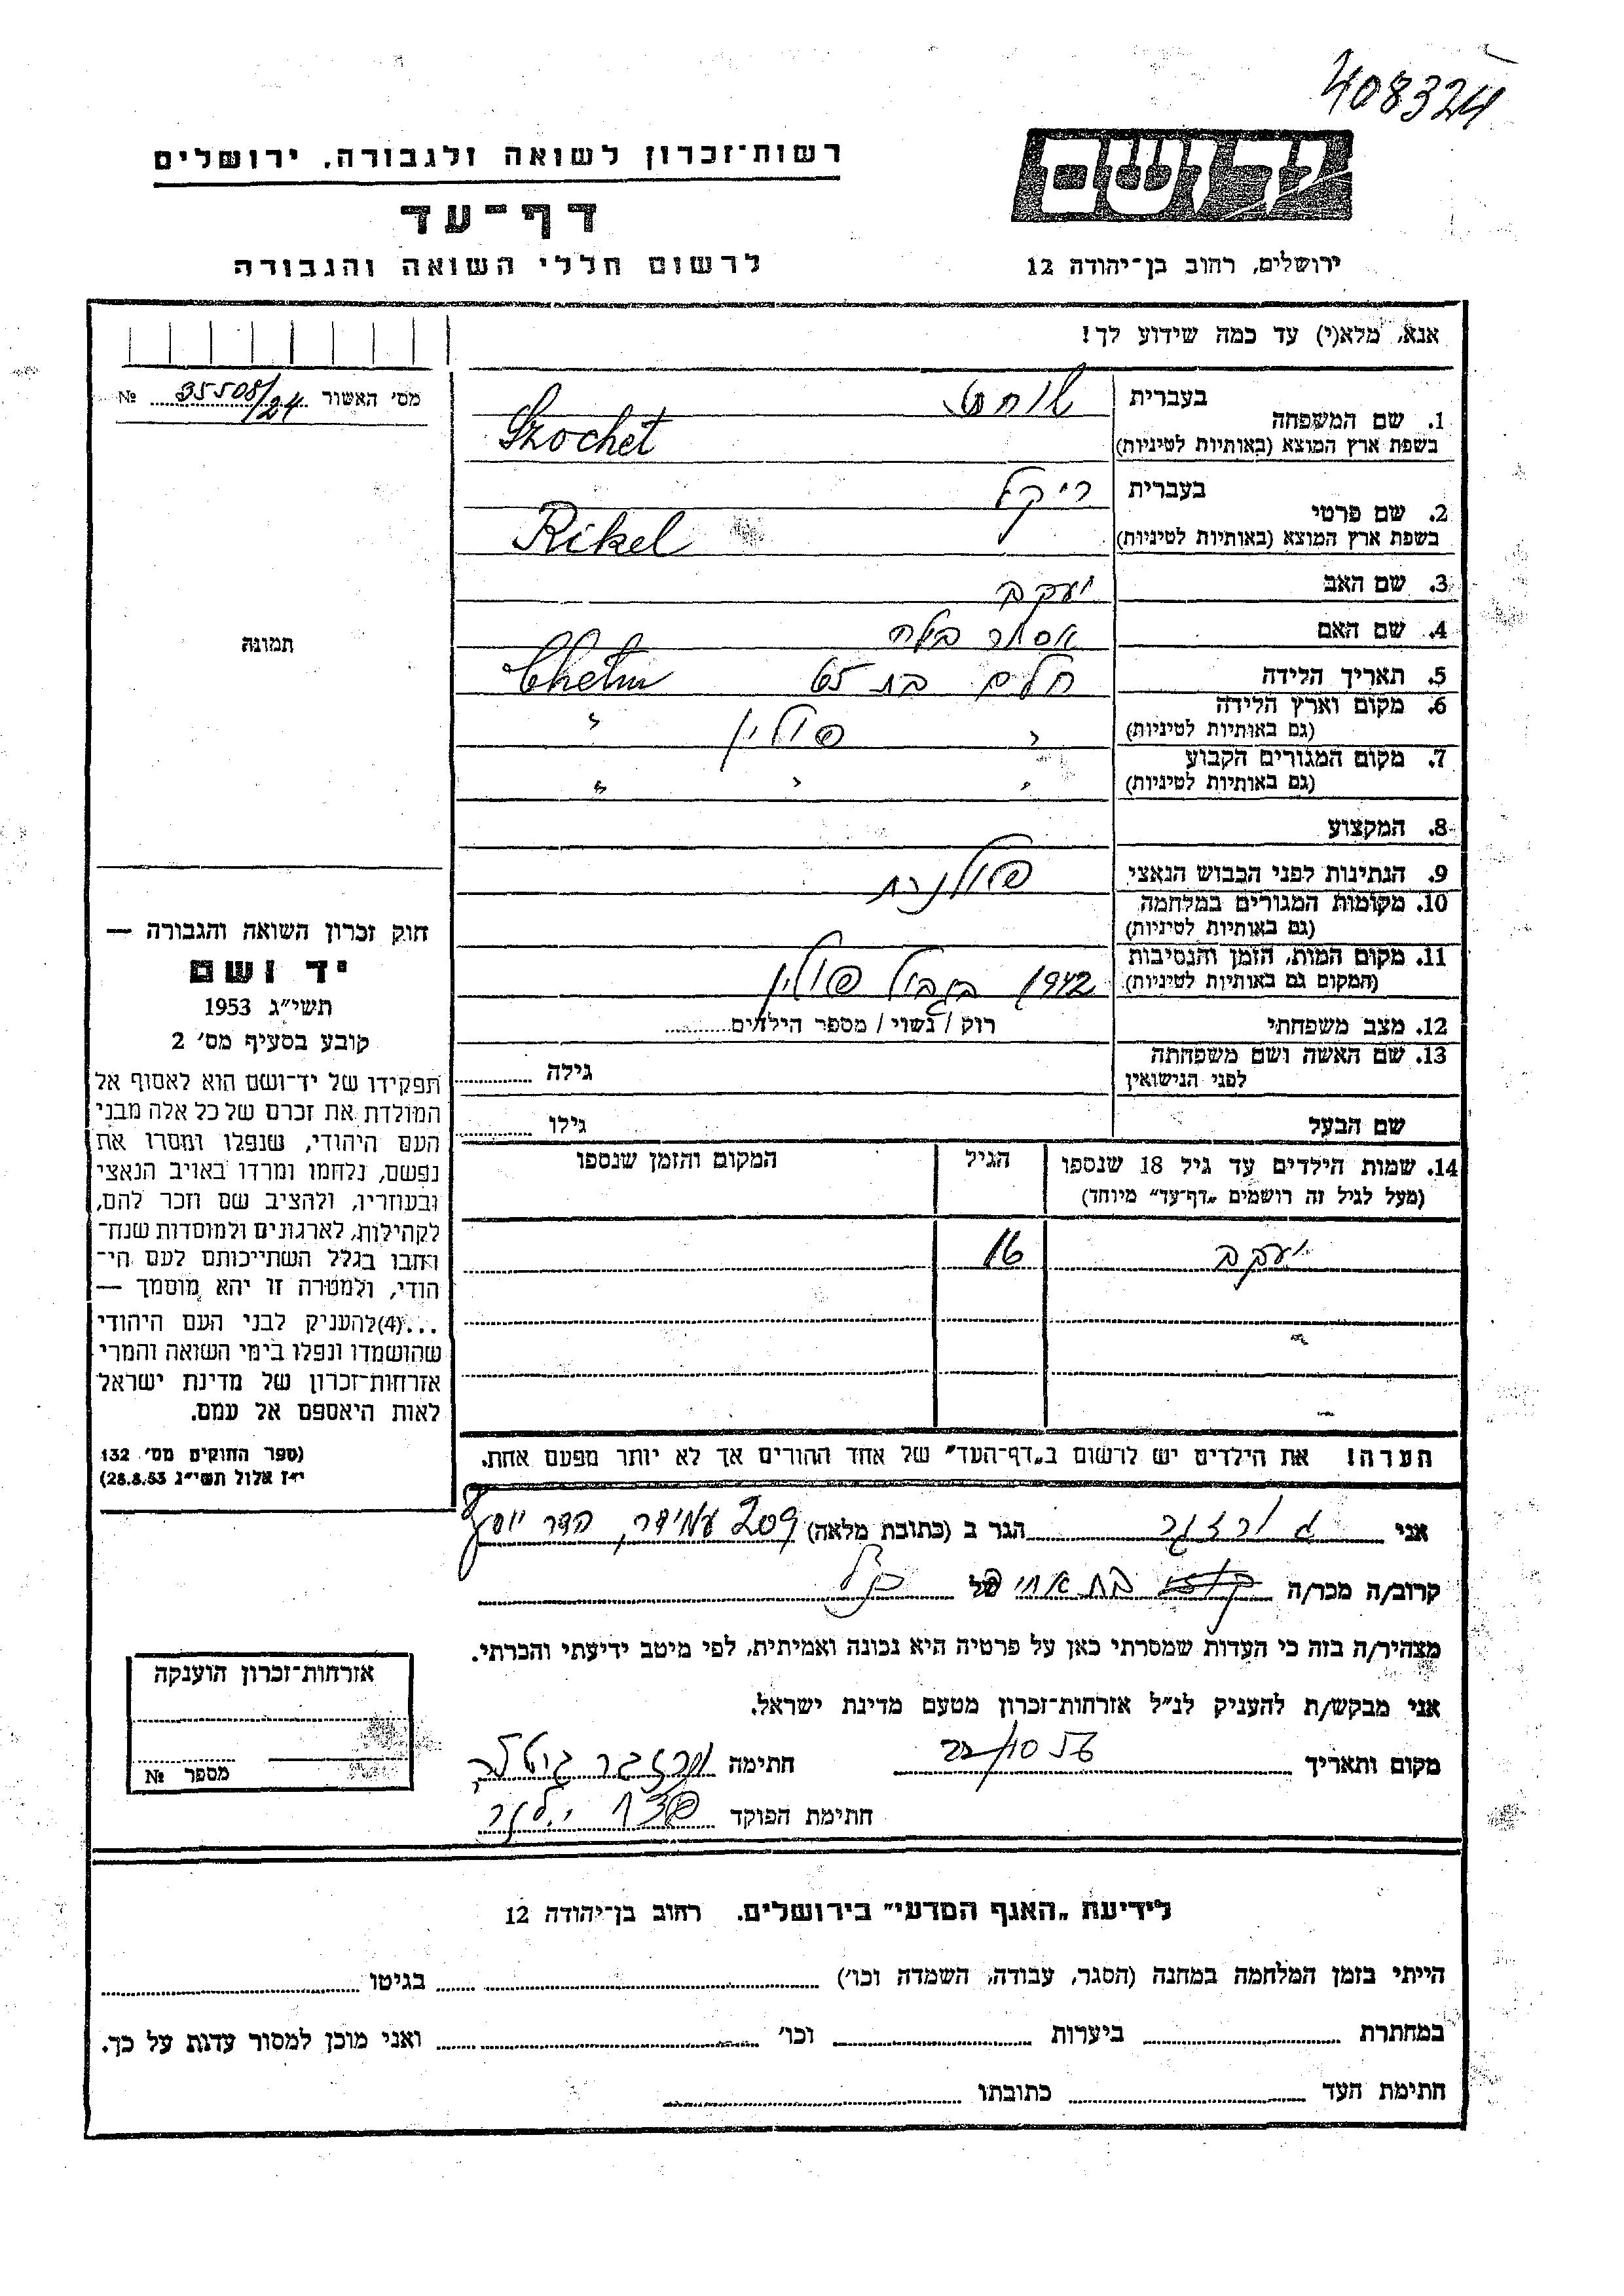 408324
רשות־זכרון לשואה ולגבורה. ירושלים
יד ושם
דף־עד
לרשום חללי השואה והגבורה
ירושלים, רחוב בן־יהודה 12
אנא, מלא(י) עד כמה שידוע לך!
מס׳ האשור 35508/24 №
תמונה
1. שם המשפחה
בעברית שוחט
בשפת ארץ המוצא (באותיות לטיניות) Szochet
2. שם פרטי
בעברית ריקל
בשפת ארץ המוצא (באותיות לטיניות) Rikel
3. שם האב יעקב
4. שם האם אסתר בילה
5. תאריך הלידה חלם בת 65 Chełm
6. מקום וארץ הלידה
(גם באותיות לטיניות) " פולין "
7. מקום המגורים הקבוע
(גם באותיות לטיניות) " " "
8. המקצוע
9. הנתינות לפני הכבוש הנאצי פולנית
10. מקומות המגורים במלחמה
(גם באותיות לטיניות)
11. מקום המות, הזמן והנסיבות
(המקום גם באותיות לטיניות) 1942 בגבול פולין
12. מצב משפחתי רוק / נשוי / מספר הילדים
13. שם האשה ושם משפחתה
לפני הנישואין גילה
שם הבעל גילו
14. שמות הילדים עד גיל 18 שנספו הגיל המקום והזמן שנספו
(מעל לגיל זה רושמים „דף־עד״ מיוחד)
יעקב 16
הערה! את הילדים יש לרשום ב„דף־העד״ של אחד ההורים אך לא יותר מפעם אחת.
חוק זכרון השואה והגבורה —
יד ושם
תשי״ג 1953
קובע בסעיף מס׳ 2
תפקידו של יד־ושם הוא לאסוף אל
המולדת את זכרם של כל אלה מבני
העם היהודי, שנפלו ומסרו את
נפשם, נלחמו ומרדו באויב הנאצי
ובעוזריו, ולהציב שם וזכר להם,
לקהילות, לארגונים ולמוסדות שנח־
רבו בגלל השתייכותם לעם הי־
הודי, ולמטרה זו יהא מוסמך —
...(4)להעניק לבני העם היהודי
שהושמדו ונפלו בימי השואה והמרי
אזרחות־זכרון של מדינת ישראל
לאות היאספם אל עמם.
(ספר החוקים מס׳ 132
י״ז אלול תשי״ג 28.8.53)
אני הגר ב (כתובת מלאה) 209 עמידר, הדר יוסף
קרוב/ה מכר/ה בת אחי של
מצהיר/ה בזה כי העדות שמסרתי כאן על פרטיה היא נכונה ואמיתית, לפי מיטב ידיעתי והכרתי.
אני מבקש/ת להעניק לנ״ל אזרחות־זכרון מטעם מדינת ישראל.
מקום ותאריך חתימה
חתימת הפוקד
אזרחות־זכרון הוענקה
מספר №
לידיעת „האגף המדעי״ בירושלים. רחוב בן־יהודה 12
הייתי בזמן המלחמה במחנה (הסגר, עבודה, השמדה וכו׳) בגיטו
במחתרת ביערות וכו׳ ואני מוכן למסור עדות על כך.
חתימת העד כתובתו